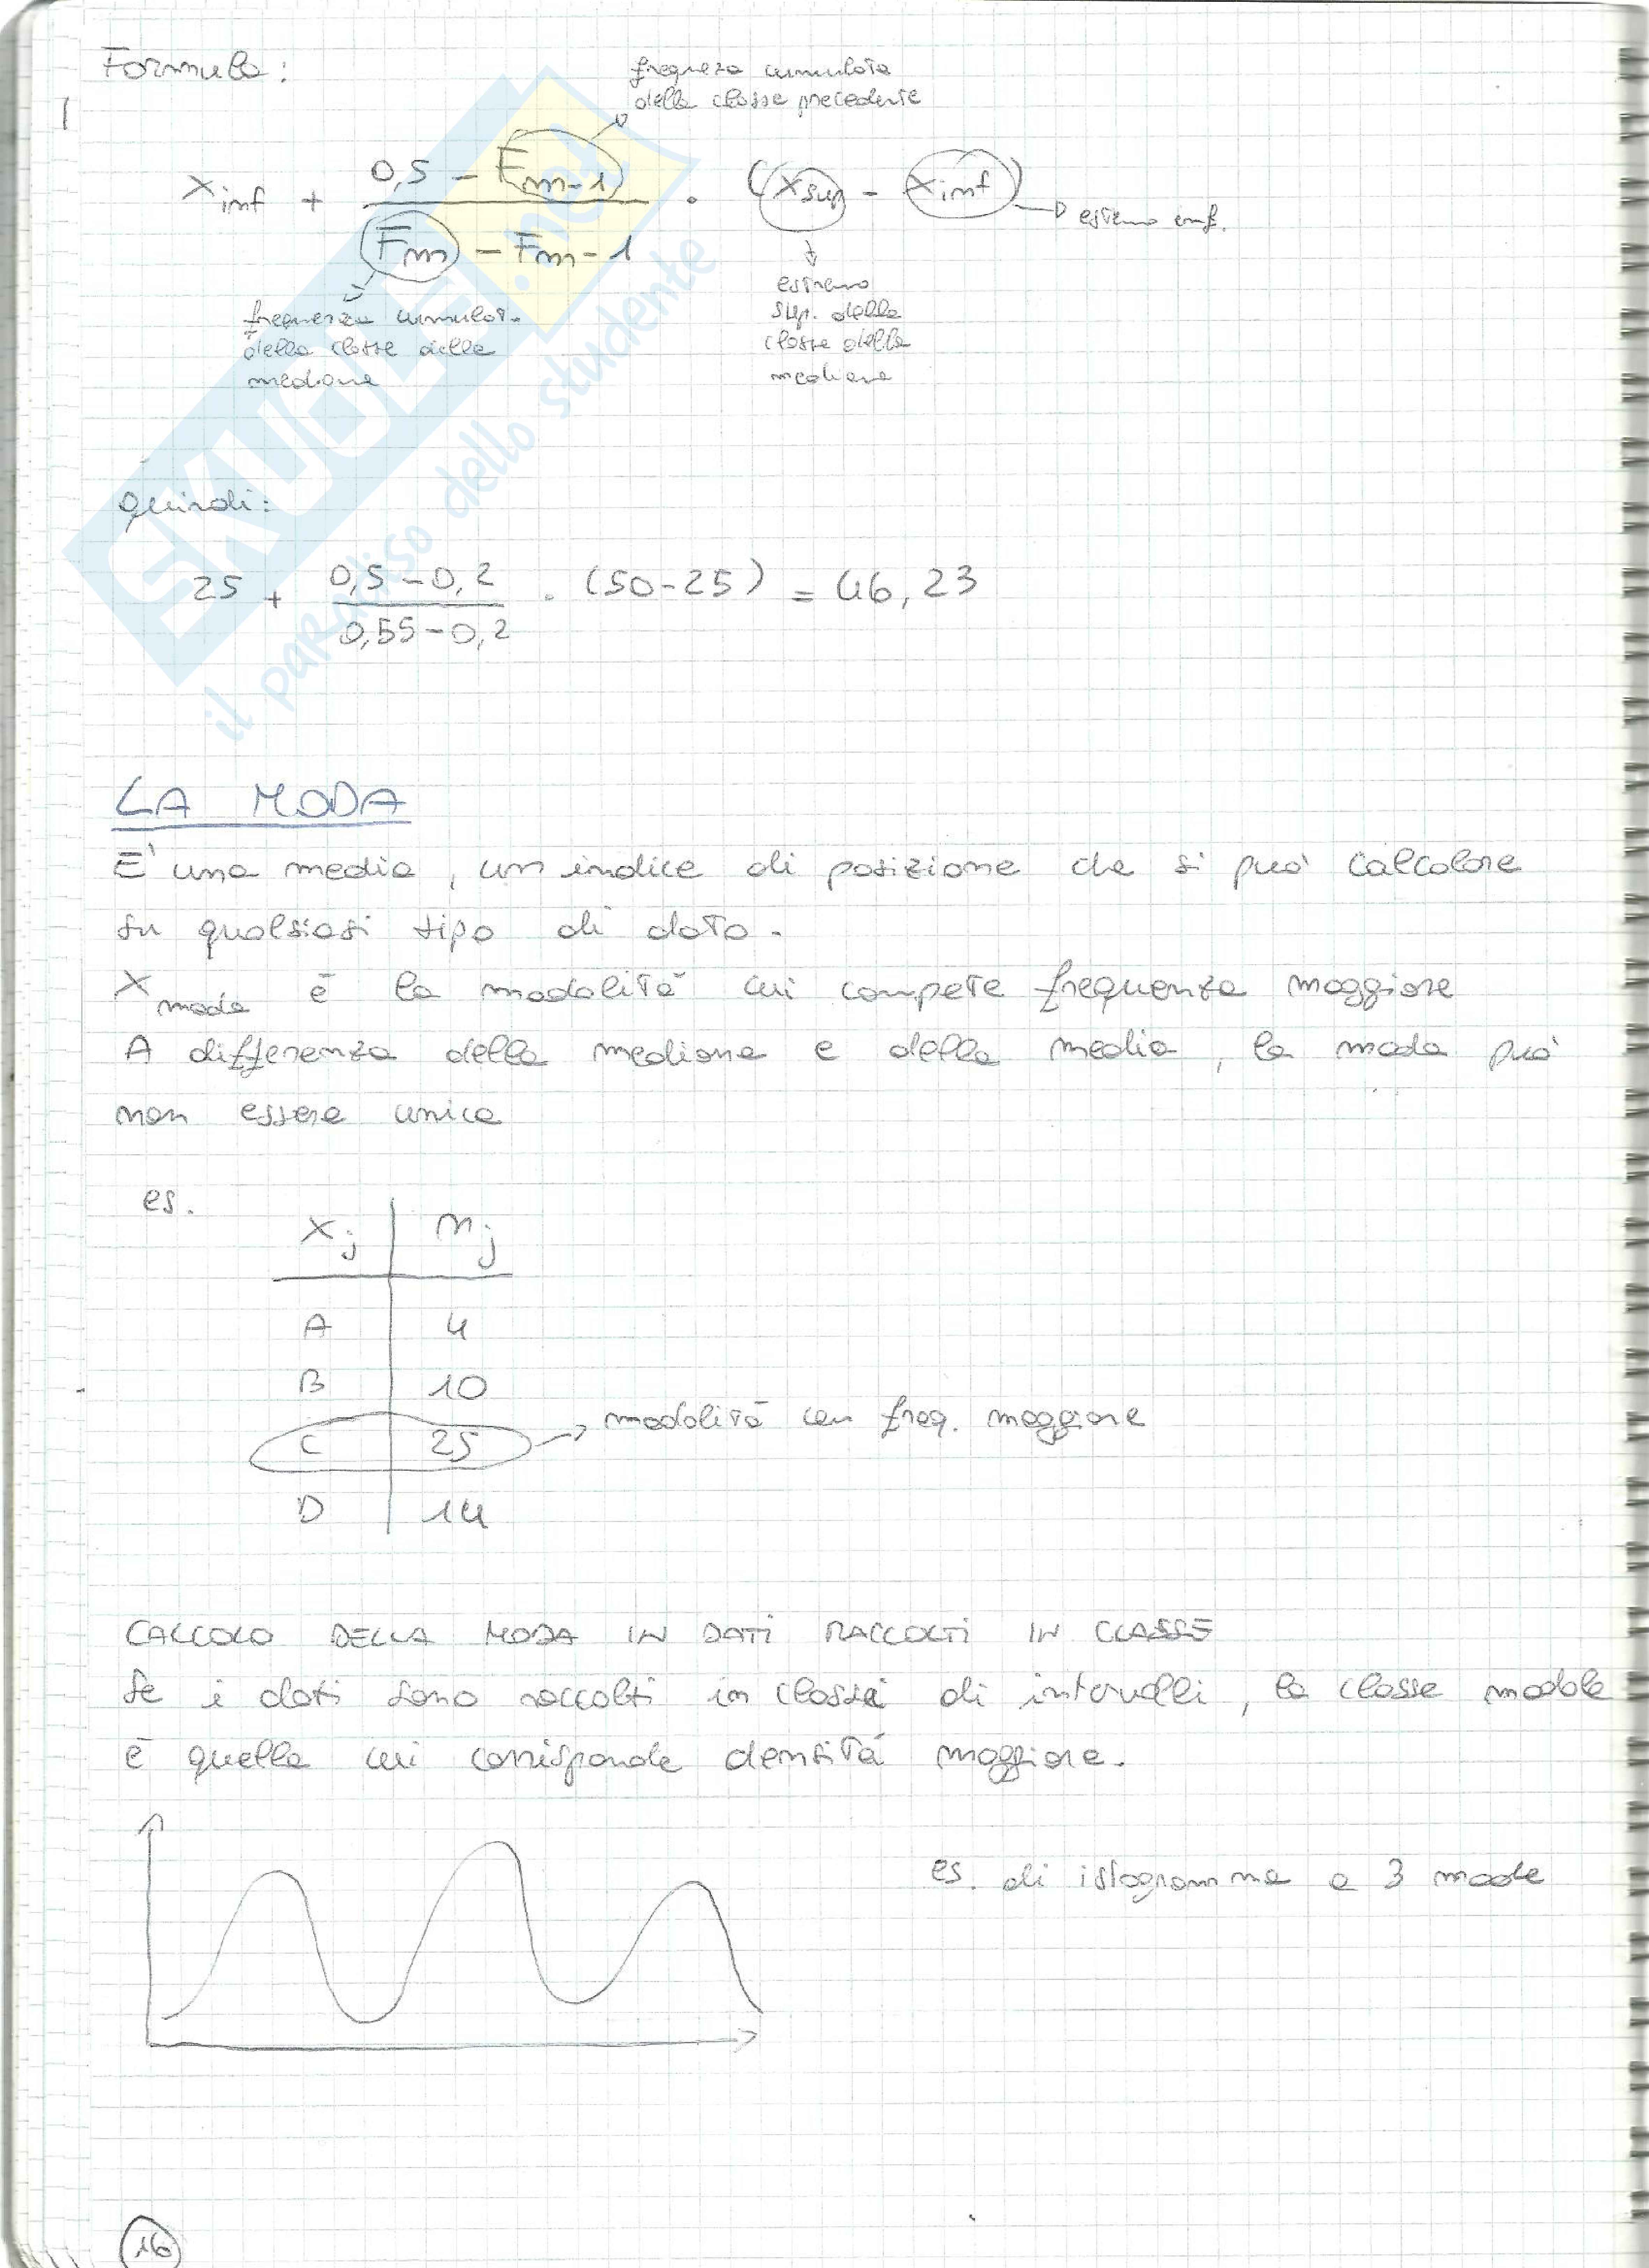 Formula:
frequeza cumulata
della classe precedente
x inf + 0,5 - Fm-1 / Fm - Fm-1 · (xsup - xinf)
estremo inf.
frequenza cumulat.
della classe della
mediana
estremo
sup. della
classe della
mediana
quindi:
25 + 0,5-0,2 / 0,55-0,2 · (50-25) = 46,23
LA MODA
E' una media, un indice di posizione che si può calcolare
su qualsiasi tipo di dato.
X moda è la modalità cui compete frequenza maggiore
A differenza della mediana e della media, la moda può
non essere unica
es.
xj nj
A 4
B 10
C 25 → modalità con freq. maggiore
D 14
CALCOLO DELLA MODA IN DATI RACCOLTI IN CLASSE
Se i dati sono raccolti in classi di intervalli, la classe modale
è quella cui corrisponde densità maggiore.
es. di istogramma a 3 mode
16
SKUOLA.net
il paradiso dello studente